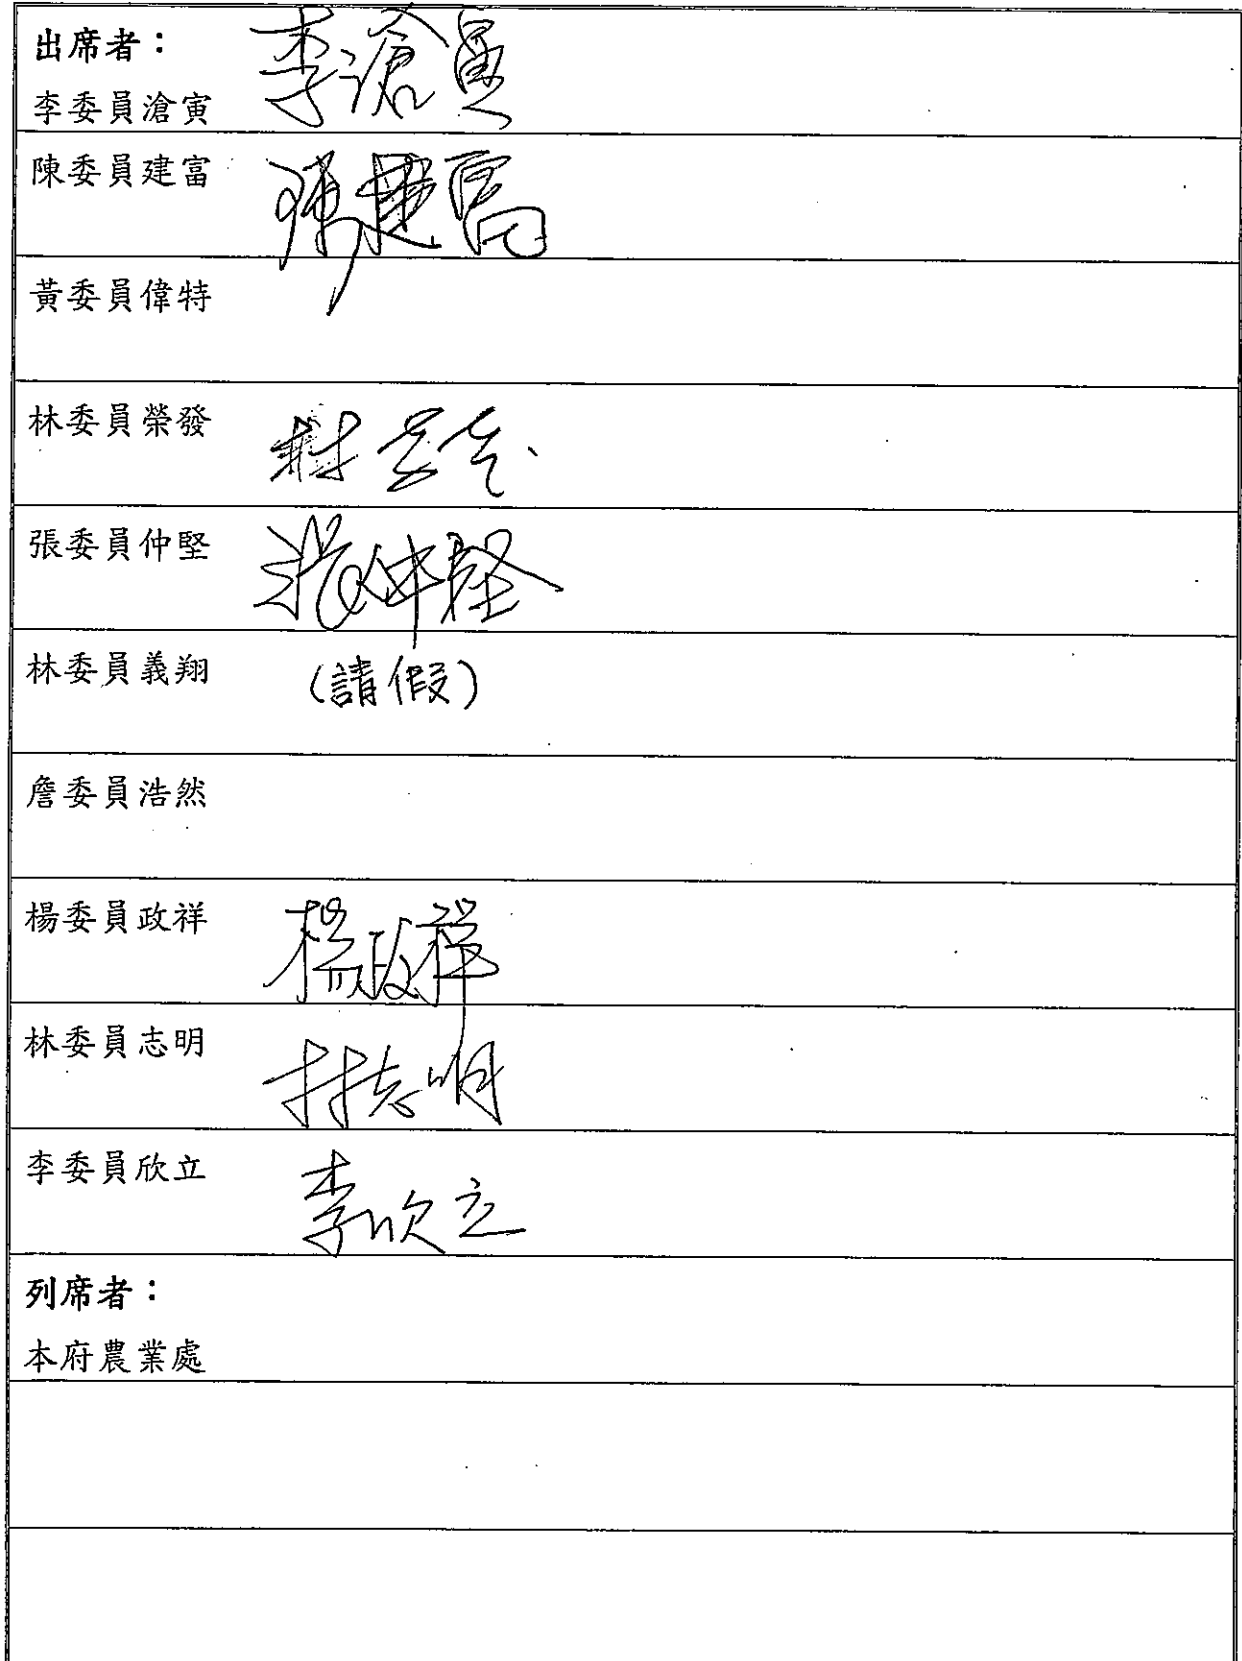 出席者：
李委員滄寅 李滄寅
陳委員建富 陳建富
黃委員偉特
林委員榮發 林
張委員仲堅 張仲堅
林委員義翔 (請假)
詹委員浩然
楊委員政祥 楊政祥
林委員志明 林志明
李委員欣立 李欣立
列席者：
本府農業處